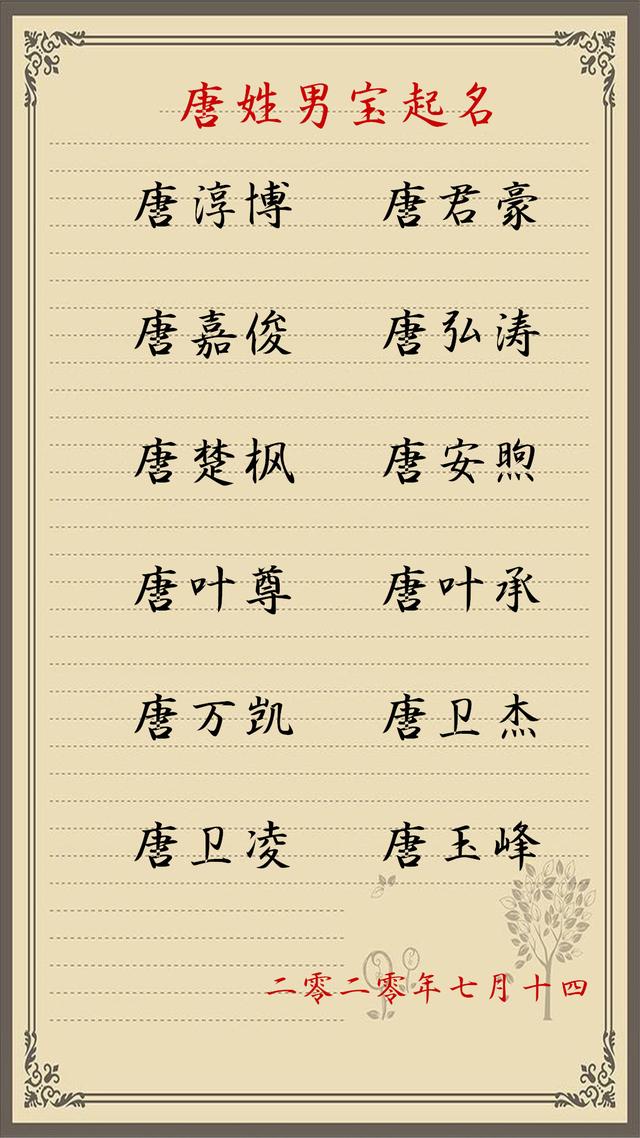 唐姓男宝起名
唐淳博 唐君豪
唐嘉俊 唐弘涛
唐楚枫 唐安煦
唐叶尊 唐叶承
唐万凯 唐卫杰
唐卫凌 唐玉峰
二零二零年七月十四